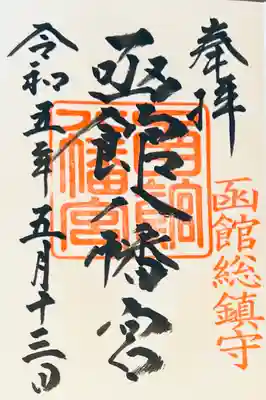 奉拝
函館総鎮守
函館八幡宮
令和五年五月十三日